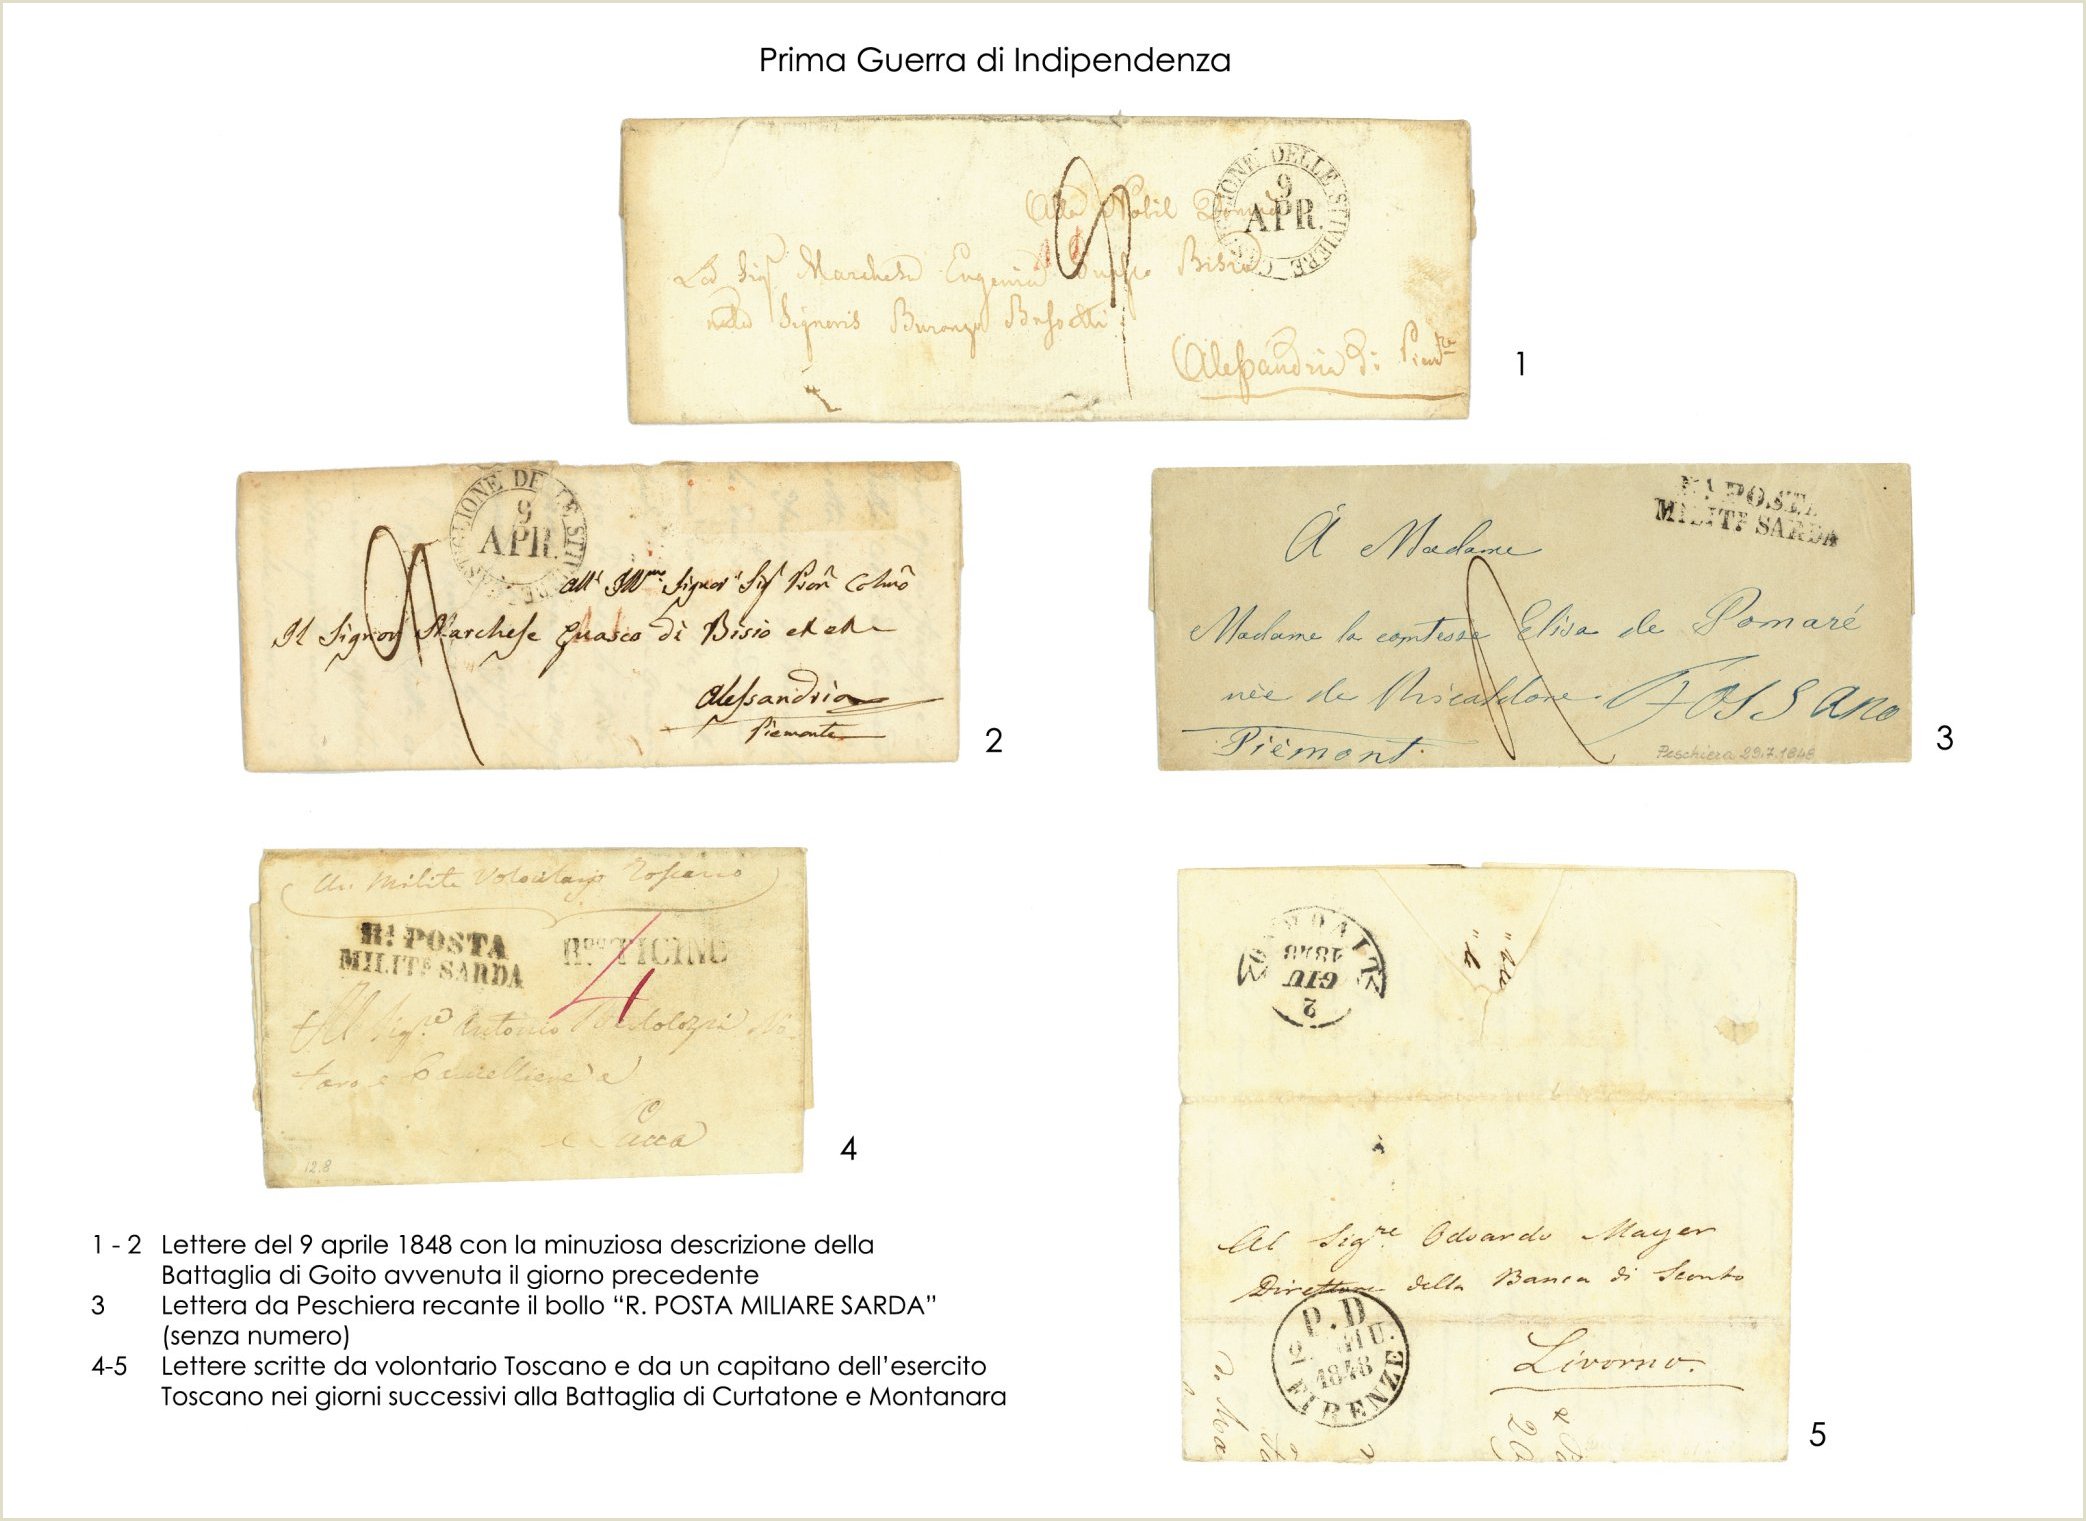 Prima Guerra di Indipendenza
CASTIGLIONE DELLE STIVIERE
9
APR.
Alla Nobil Donna
La Sig. Marchesa Eugenia Bisio
Alessandria di
1
CASTIGLIONE DELLE STIVIERE
9
APR.
All' Ill. Signor Sig.
Il Signor Marchese Guasco di Bisio
Alessandria
Piemonte
2
Rª POSTA
MILITE SARDA
À Madame
Madame la comtesse Elisa de Pomaré
née de Riscaldone Fossano
Piémont.
Peschiera 29.7.1848
3
Un Milite Volontario Toscano
Rª POSTA
MILITE SARDA
TICINO
4
Al Sig.re Antonio
Lucca
12.8
4
LIVORNO
1848
GIU
2
Al Sig.re Odoardo Mayer
Direttore della Banca di Sconto
Livorno.
P.D
2 GIU.
1848
FIRENZE
5
1 - 2 Lettere del 9 aprile 1848 con la minuziosa descrizione della
Battaglia di Goito avvenuta il giorno precedente
3 Lettera da Peschiera recante il bollo “R. POSTA MILIARE SARDA”
(senza numero)
4-5 Lettere scritte da volontario Toscano e da un capitano dell’esercito
Toscano nei giorni successivi alla Battaglia di Curtatone e Montanara